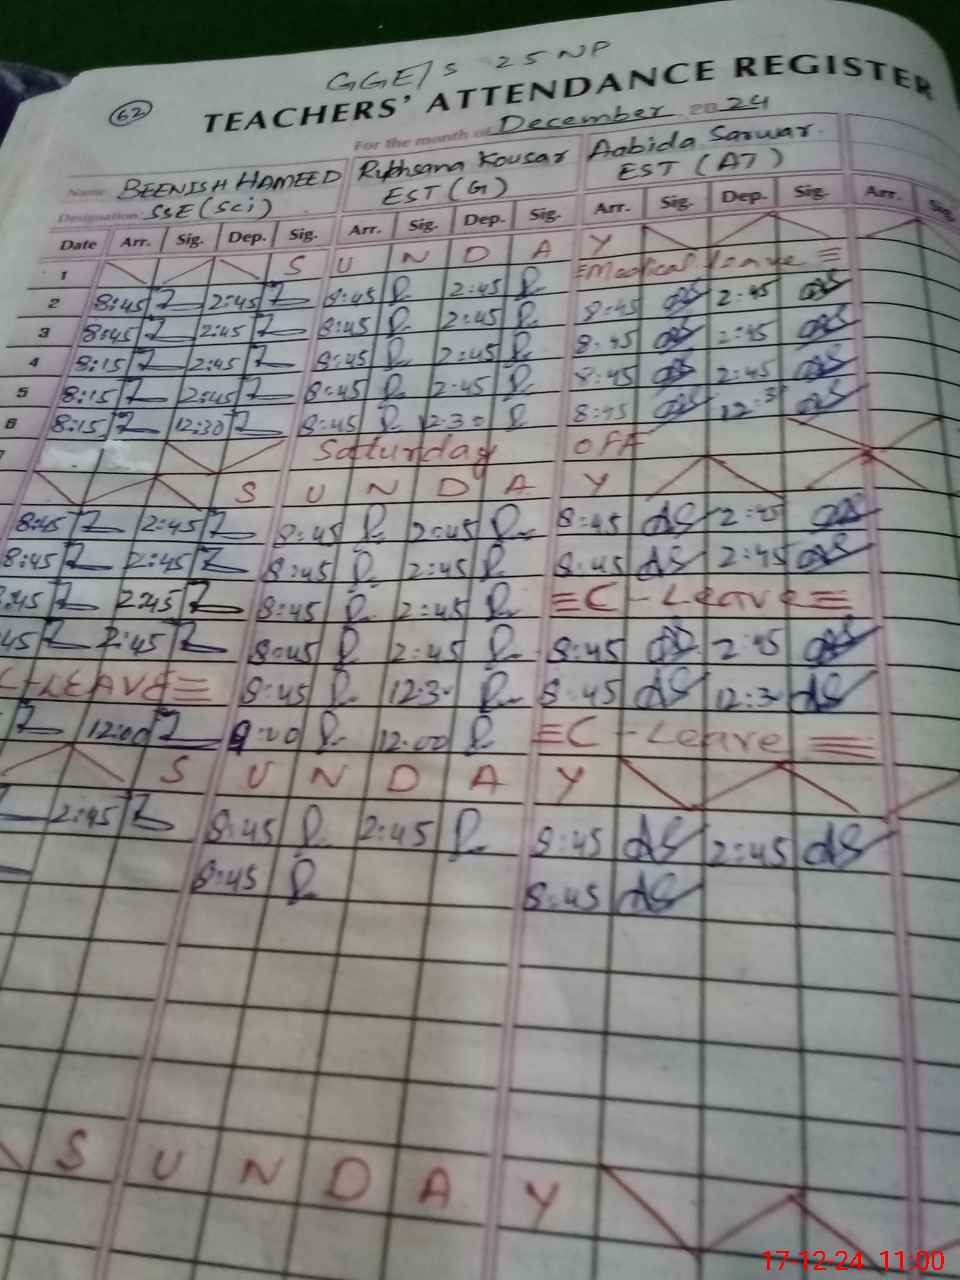 GGE/S 25 NP
62
TEACHERS' ATTENDANCE REGISTER
For the month of December 2024
Name BEENISH HAMEED Rukhsana Kousar Aabida Sarwar
Designation SSE (Sci) EST (G) EST (AT)
Date Arr. Sig. Dep. Sig. Arr. Sig. Dep. Sig. Arr. Sig. Dep. Sig. Arr. Sig.
1 S U N D A Y
2 8:45 2:45 8:45 2:45 Medical leave
3 8:45 2:45 8:45 2:45 8:45 2:45
4 8:15 2:45 8:45 2:45 8:45 2:45
5 8:15 2:45 8:45 2:45 8:45 2:45
6 8:15 12:30 8:45 12:30 8:45 12:3
7 Saturday OFF
S U N D A Y
8:45 2:45 8:45 2:45 8:45 2:45
8:45 2:45 8:45 2:45 8:45 2:45
:45 2:45 8:45 2:45 C-Leave
45 2:45 8:45 2:45 8:45 2:45
C-LEAVE 8:45 12:3 8:45 12:3
12:00 9:00 12:00 C-Leave
S U N D A Y
2:45 8:45 2:45 8:45 2:45
8:45 8:45
S U N D A Y
17-12-24 11:00